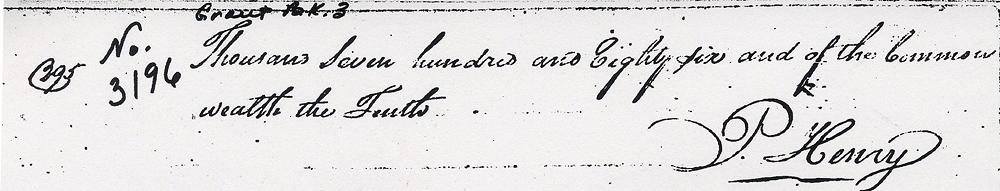 Grant Bk. 3
No.
3196
395
Thousand Seven hundred and Eighty six and of the Common
wealth the Tenth
P. Henry